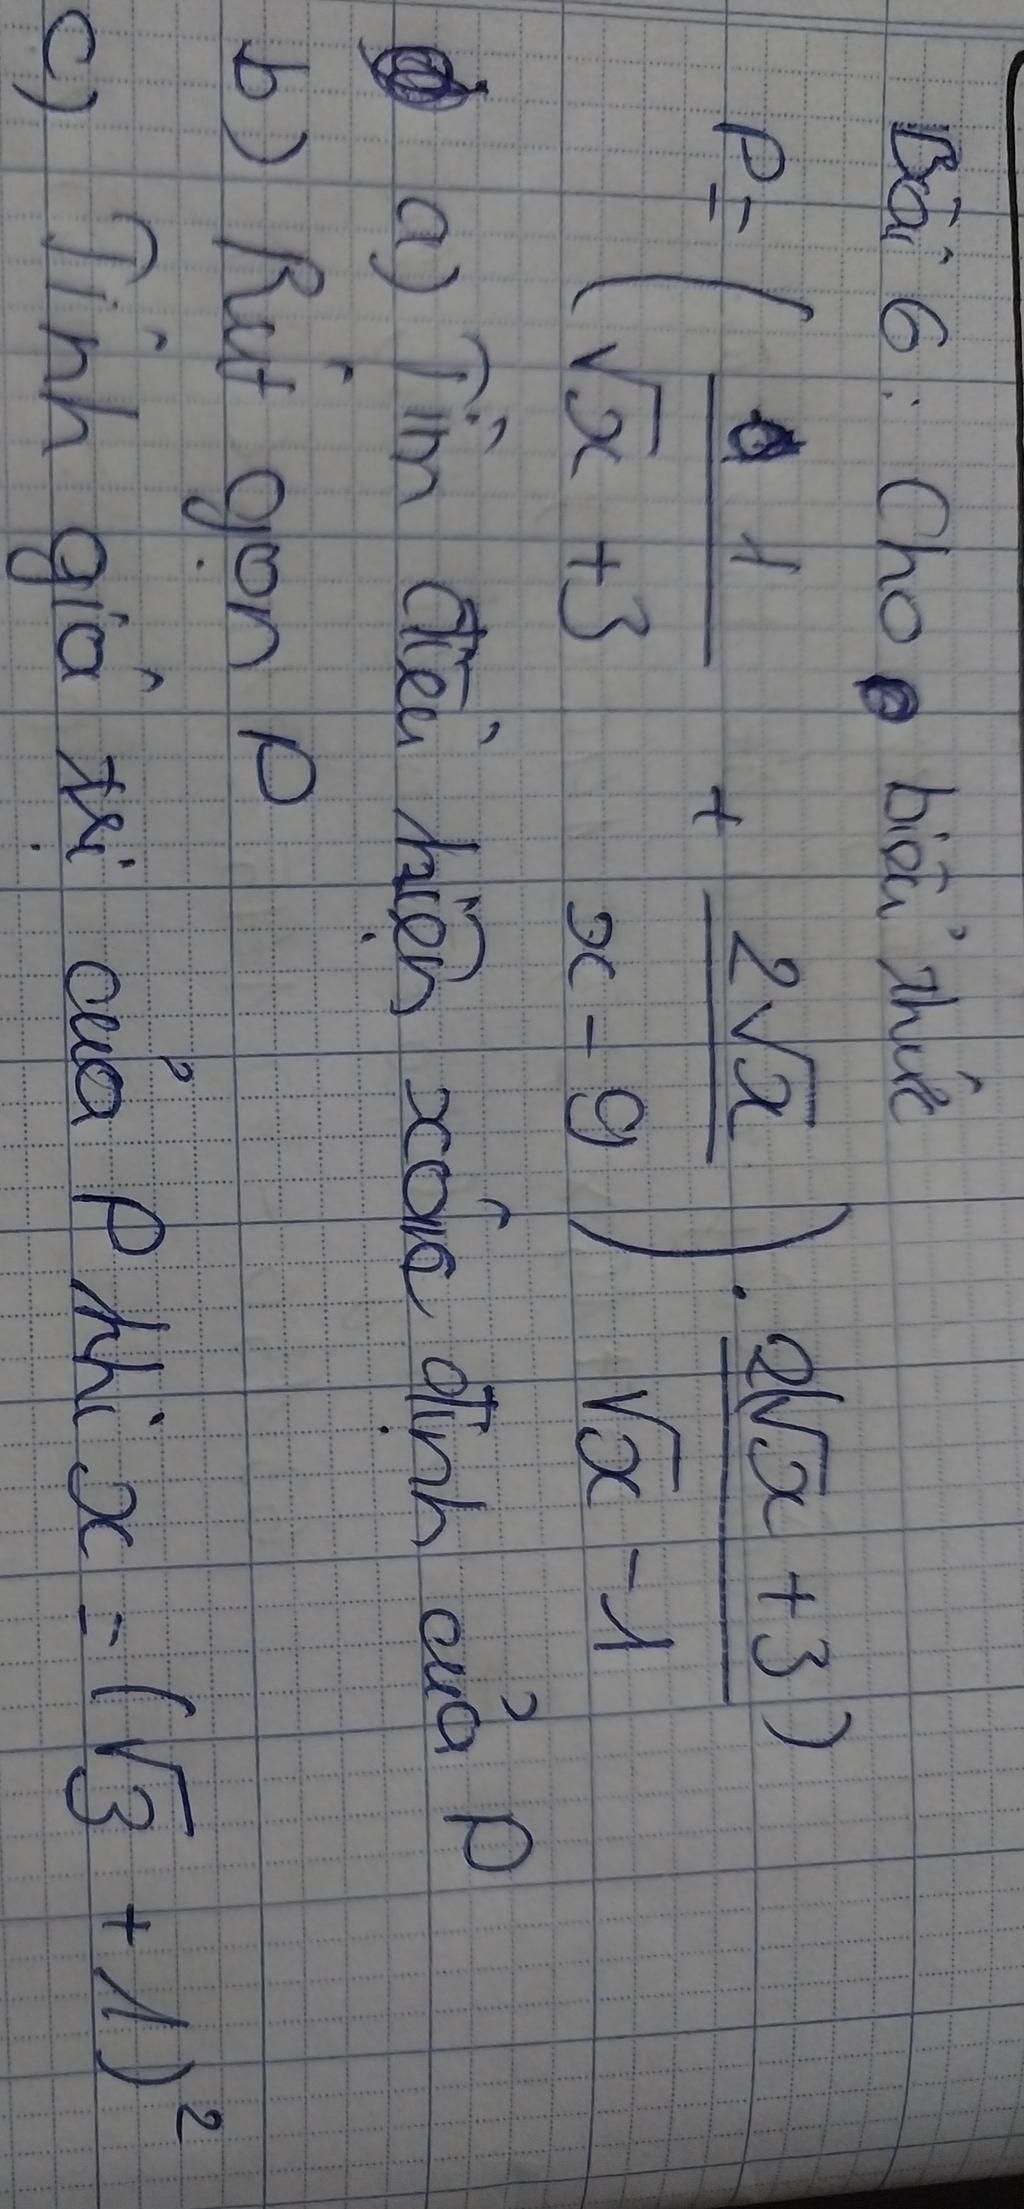 Bài 6: Cho biểu thức
P = ( 1 / (√x + 3) + 2√x / (x - 9) ) . 2(√x + 3) / (√x - 1)
a) Tìm điều kiện xác định của P
b) Rút gọn P
c) Tính giá trị của P khi x = (√3 + 1)²